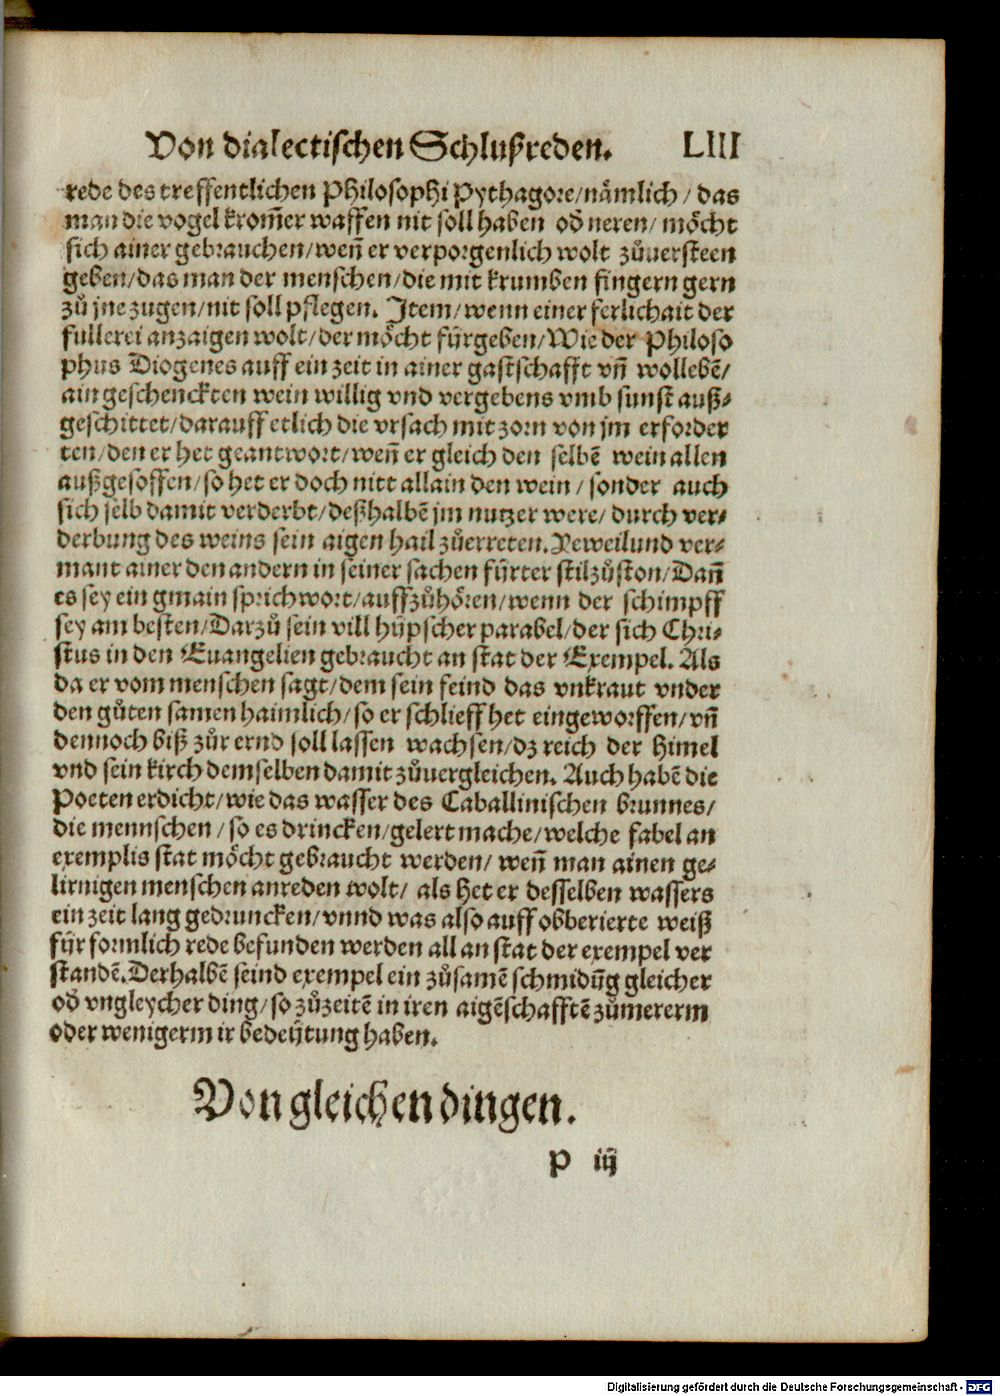 Von dialectischen Schlußreden. LIII
rede des treffentlichen Philosophi Pythagore/nämlich/das
man die vogel krom̄er waffen nit soll haben od̄ neren/möcht
sich ainer gebrauchen/wen̄ er verporgenlich wolt zůuersteen
geben/das man der menschen/die mit krumben fingern gern
zů jne zugen/nit soll pflegen. Item/wenn einer ferlichait der
fullerei anzaigen wolt/der möcht fürgeben/Wie der Philoso
phus Diogenes auff ein zeit in ainer gastschafft vn̄ wollebē/
ain geschenckten wein willig vnd vergebens vmb sunst auß⸗
geschittet/darauff etlich die vrsach mit zorn von jm erforder
ten/den er het geantwort/wen̄ er gleich den selbē wein allen
außgesoffen/so het er doch nitt allain den wein/sonder auch
sich selb damit verderbt/deßhalbē jm nutzer were/durch ver⸗
derbung des weins sein aigen hail zůerreten. Yeweil und ver⸗
mant ainer den andern in seiner sachen fürter stilzůston/Dan̄
es sey ein gmain sprichwort/auffzůhören/wenn der schimpff
sey am besten/Darzů sein vill hüpscher parabel/der sich Chri⸗
stus in den Euangelien gebraucht an stat der Exempel. Als
da er vom menschen sagt/dem sein feind das vnkraut vnder
den gůten samen haimlich/so er schlieff het eingeworffen/vn̄
dennoch biß zůr ernd soll lassen wachsen/dz reich der himel
vnd sein kirch demselben damit zůuergleichen. Auch habē die
Poeten erdicht/wie das wasser des Caballinischen brunnes/
die mennschen/so es drincken/gelert mache/welche fabel an
exemplis stat möcht gebraucht werden/wen̄ man ainen ge⸗
lirnigen menschen anreden wolt/als het er desselben wassers
ein zeit lang gedruncken/vnnd was also auff obberierte weiß
für formlich rede befunden werden all an stat der exempel ver
standē. Derhalbē seind exempel ein zůsamē schmidūg gleicher
od̄ vngleycher ding/so zůzeitē in iren aigēschafftē zůmererm
oder wenigerm ir bedeütung haben.
Von gleichen dingen.
P iij
Digitalisierung gefördert durch die Deutsche Forschungsgemeinschaft - DFG